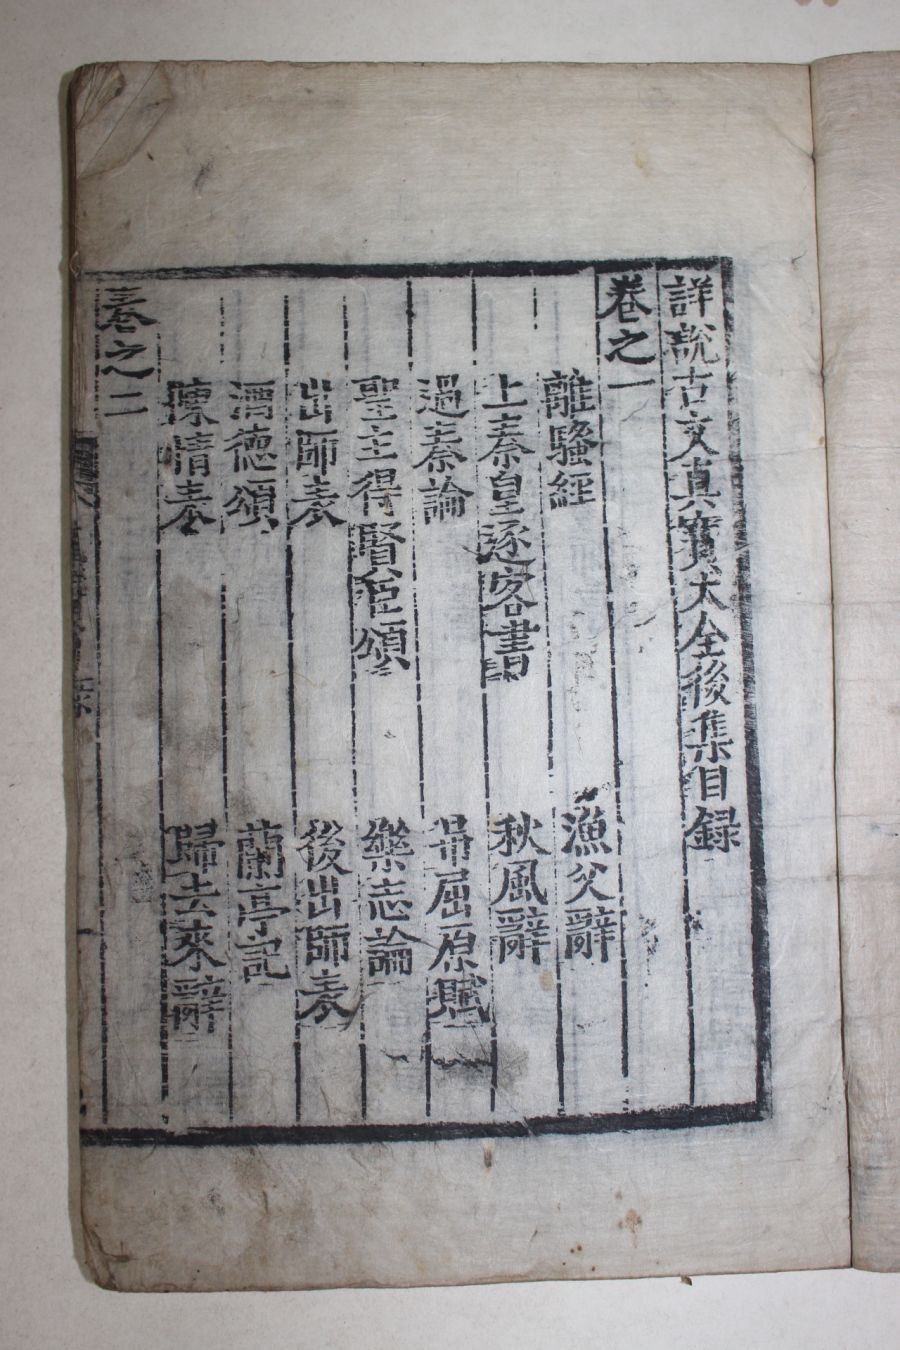 詳說古文眞寶大全後集目錄
卷之一
離騷經 漁父辭
上秦皇逐客書 秋風辭
過秦論 弔屈原賦
聖主得賢臣頌 樂志論
出師表 後出師表
酒德頌 蘭亭記
陳情表 歸去來辭
卷之二